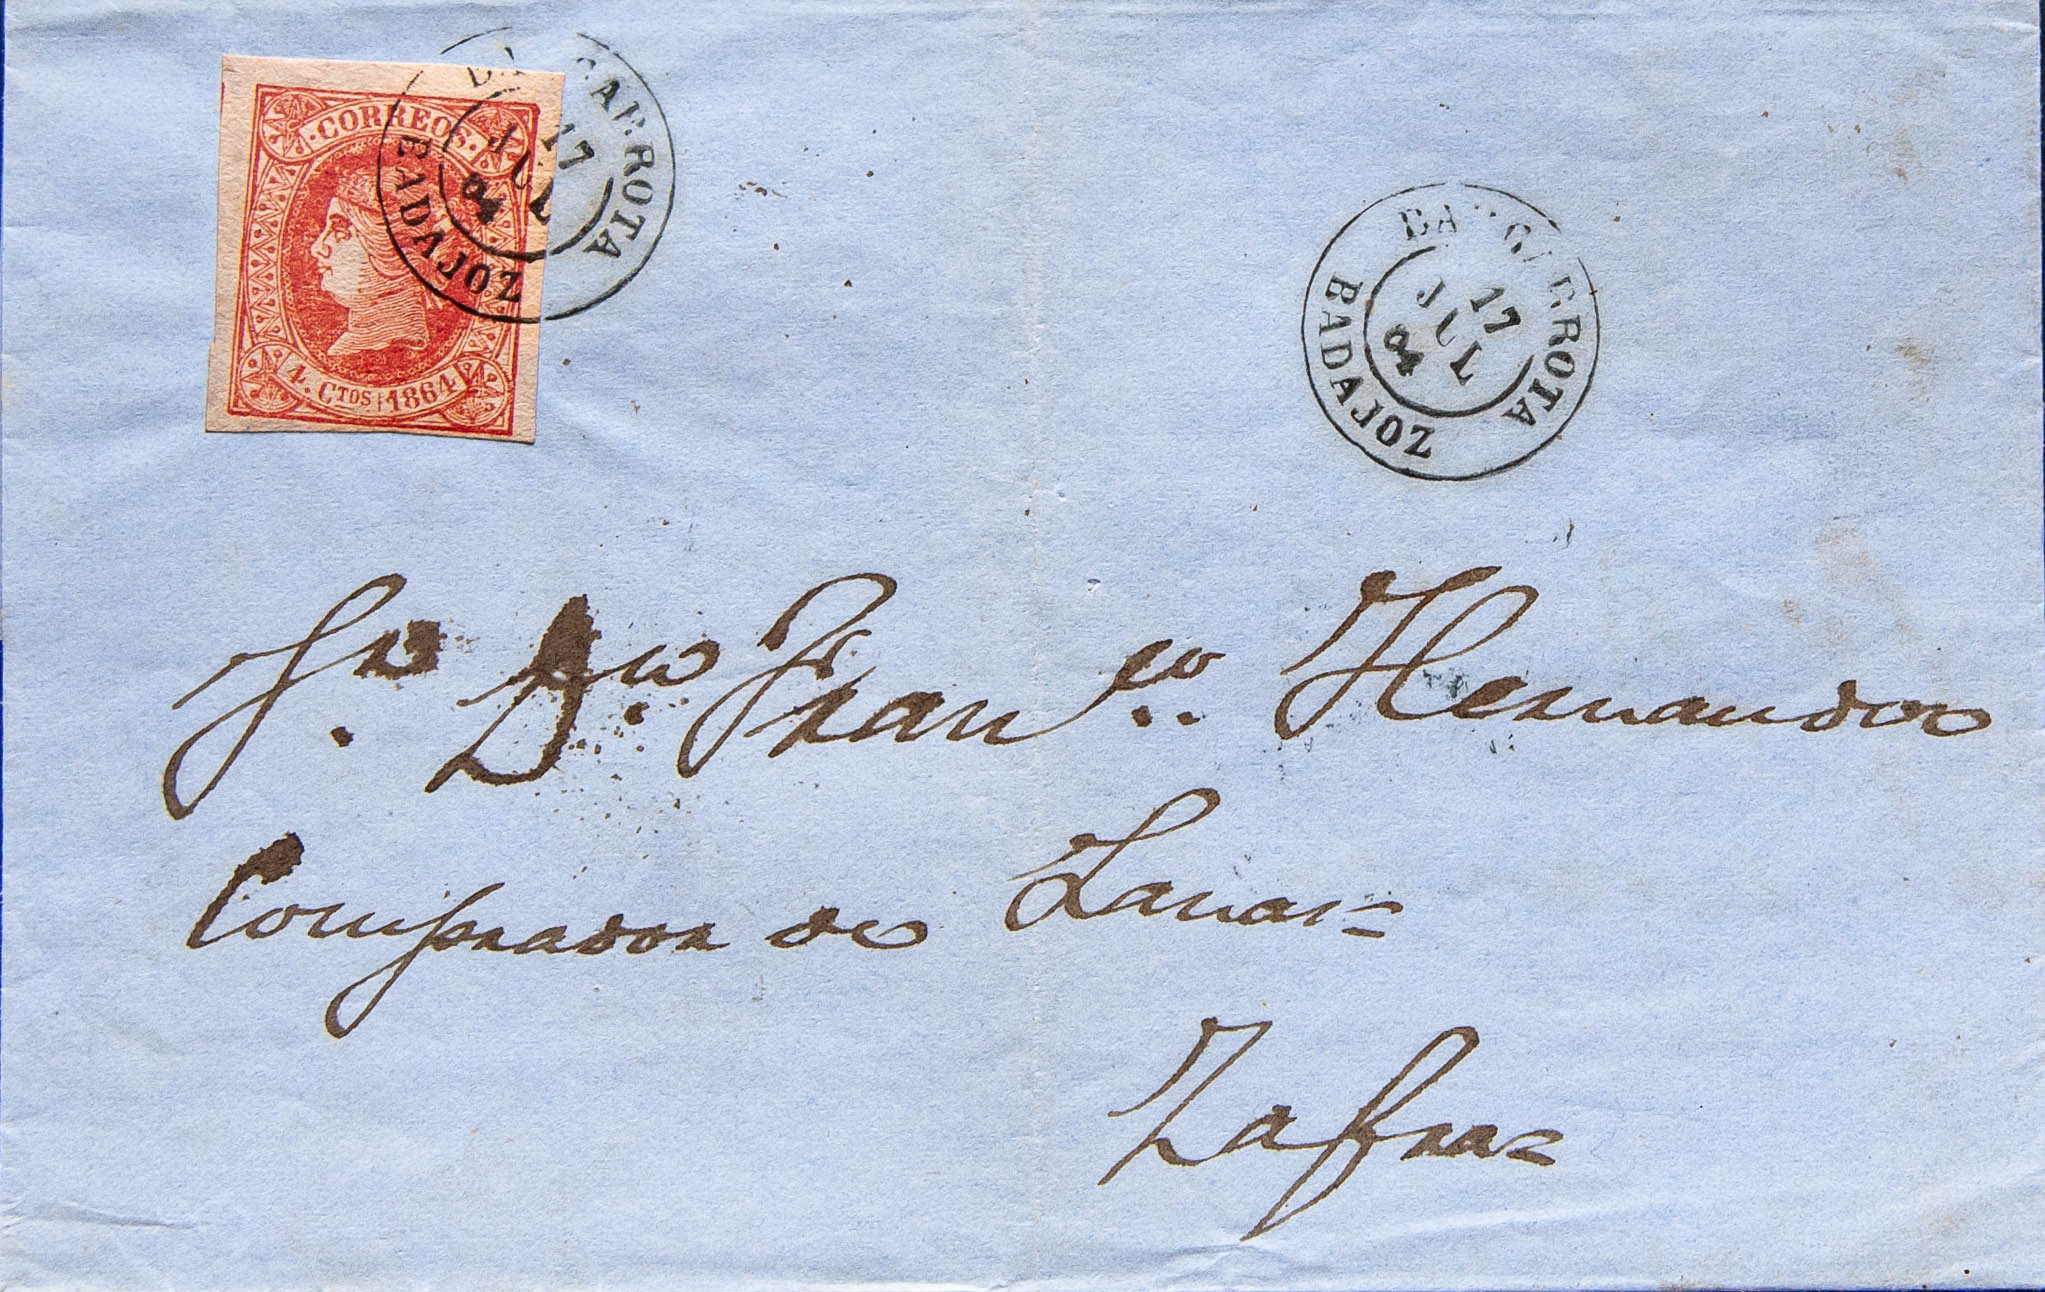 CORREOS.
4. CTOS 1864
BARCARROTA
17
JUL
64
BADAJOZ
BARCARROTA
17
JUL
64
BADAJOZ
Sr. Dn. Franco. Hernando
Comprador de Lanas =
Zafra =